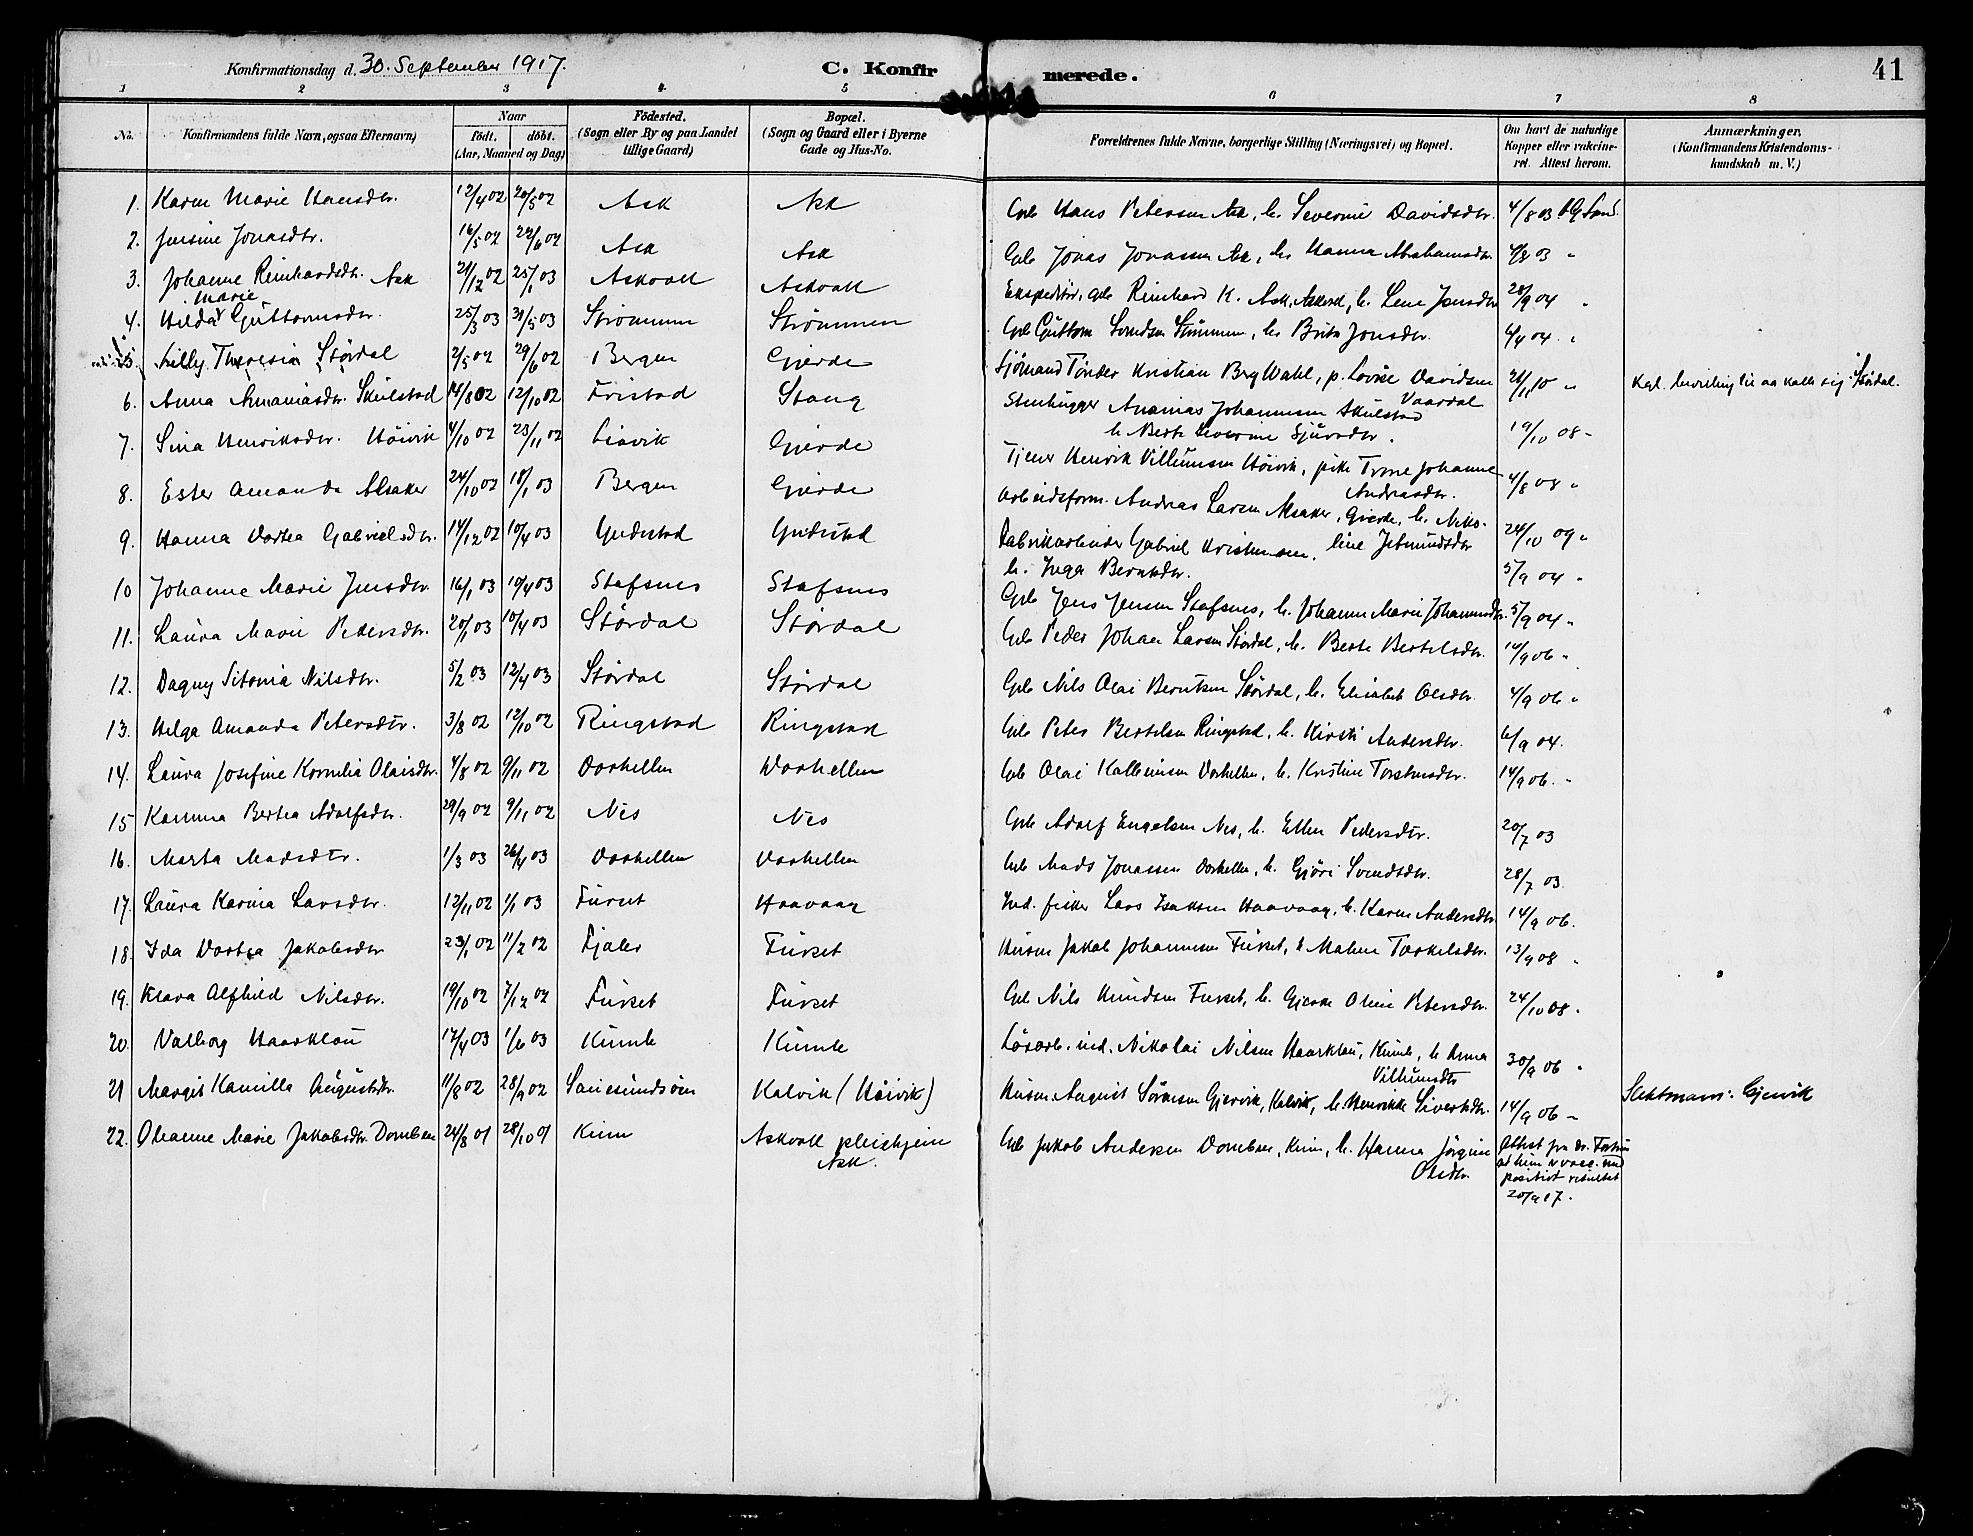 Konfirmationsdag d. 30. September 1917. C. Konfirmerede. 41
1 2 3 4 5 6 7 8
No. Konfirmandens fulde Navn, ogsaa Efternavn) Naar födt. döbt. (Aar, Maaned og Dag) Födested. (Sogn eller By og paa Landet tillige Gaard) Bopæl. (Sogn og Gaard eller i Byerne Gade og Hus-No. Forældrenes fulde Navne, borgerlige Stilling (Næringsvei) og Bopæl. Om havt de naturlige Kopper eller vakcineret. Attest herom. Anmærkninger. (Konfirmandens Kristendomskundskab m. V.)
1. Karen Marie Hansdtr. 12/4 02 20/5 02 Ask Ask Gbr. Hans Petersen Ask, h. Severine Davidsdtr. 4/8 03
2. Jensine Jonasdtr. 16/5 02 22/6 02 Ask Ask Gbr. Jonas Jonassen Ask, h. Hanna Abrahamsdtr. 4/8 03 "
3. Johanne Reinhardsdtr. Ask 21/12 02 25/1 03 Askvoll Askvoll Ekspeditör, gbr. Reinhard K. Ask, Askvoll, h. Lene Jensdtr 28/9 04 "
4. Hilda Marie Guttormsdtr. 25/3 03 31/5 03 Strömmen Strömmen Gbr. Guttorm Svendsen Strömmen, h. Brita Jonsdtr. 4/4 04 "
5. Lilly Theresia Stördal 2/5 02 29/6 02 Bergen Gjerde Sjömand Tönder Kristian Berg Wahl, p. Lovise Davidsen Vaardal 26/1 10 " Kgl. bevilling til aa kalle sig: Stördal.
6. Anna Ananiasdtr. Skulstad 14/8 02 12/10 02 Fristad Stang Stenhugger Ananias Johannesen Skulstad h. Berte Severine Sjursdtr. 19/10 08 "
7. Sina Henriksdtr. Höivik 4/10 02 23/11 02 Liavik Gjerde Tjener Henrik Villumsen Höivik, pike Trine Johanne Andreasdtr. 4/8 08 "
8. Ester Amanda Alsaker 24/10 02 18/1 03 Bergen Gjerde Arbeidsform. Andreas Larsen Alsaker, Gjerde, h. Nikoline Jetmundsdtr 24/10 09 "
9. Hanna Dortea Gabrielsdtr. 14/12 02 10/4 03 Yndestad Yndestad Fabrikarbeider Gabriel Kristensen, h. Inga Berntsdtr. 5/9 04 "
10 Johanne Marie Jensdtr. 16/1 03 10/4 03 Stafsnes Stafsnes Gbr. Jens Jensen Stafsnes, h. Johanne Marie Johannesdtr. 5/9 04 "
11. Laura Marie Pedersdtr. 20/1 03 10/4 03 Stördal Stördal Gbr. Peder Johan Larsen Stördal, h. Berte Bertelsdtr. 14/9 06 "
12. Dagny Sitonia Nilsdtr. 5/2 03 12/4 03 Stördal Stördal Gbr. Nils Olai Berntsen Stördal, h. Elisabet Olsdtr. 4/9 06 "
13. Helga Amanda Petersdtr. 3/8 02 12/10 02 Ringstad Ringstad Gbr. Peter Bertelsen Ringstad, h. Kirsti Andersdtr. 6/9 04.
14. Laura Josefine Kornelia Olaisdtr. 4/8 02 9/11 02 Vorhellen Vorhellen Gbr. Olai Kolbeinsen Vorhellen, h. Kristine Torstensdtr. 14/9 06. "
15 Kamma Bertea Adolfsdtr. 29/9 02 9/11 02 Nes Nes Gbr. Adolf Engelsen Nes, h. Ellen Pedersdtr. 20/7 03
16. Marta Madsdtr. 1/3 03 26/4 03 Vorhellen Vorhellen Gbr. Mads Jonassen Vorhellen, h. Gjöri Svendsdtr. 28/7 03.
17. Laura Karina Larsdtr. 12/11 02 1/1 03 Furset Haavaag Ind. fisker Lars Isaksen Haavaag, h. Karen Andersdtr. 14/9 06.
18. Ida Dortea Jakobsdtr 23/1 02 11/2 02 Fjaler Furset Husm. Jakob Johannesen Furset, h. Malene Torkelsdtr. 13/9 08 "
19. Klara Alfhild Nilsdtr. 19/10 02 7/12 02 Furset Furset Gbr. Nils Knudsen Furset, h. Gjerske Oline Petersdtr. 24/10 08 "
20. Valborg Haarklau 17/4 03 1/6 03 Kumle Kumle Lösarb. ind. Nikolai Nilsen Haarklau, Kumle, h. Anna Villumsdtr 30/9 06 "
21 Margit Kamilla Augustsdtr. 11/8 02 28/9 02 Sauesundsöen Kalvik (Höivik) Husm. August Sörensen Gjervik, Kalvik, h. Henrikke Sivertsdtr. 14/9 06 "
22. Oleanne Marie Jakobsdtr. Domben 24/8 01 28/10 01 Kinn Askvoll pleiehjem Ask. Gbr. Jakob Andersen Domben, Kinn, h. Hanna Jörgine Olsdtr. Attest fra dr. at hun er vacc. med positivt resultat 20/9 17.